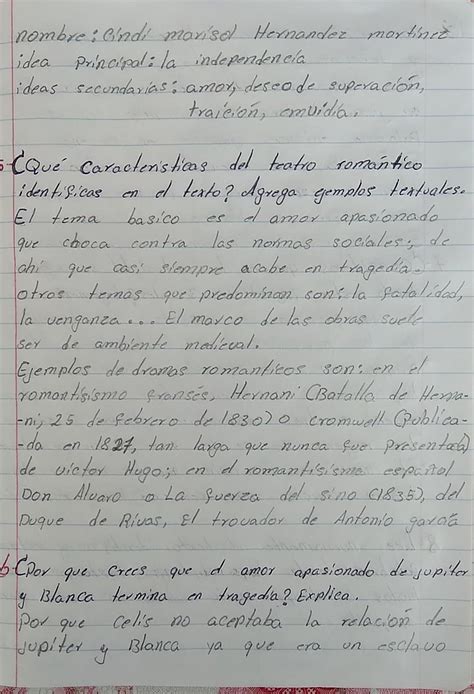 nombre: Cindi marisol Hernandez martinez
idea Principal: la independencia
ideas secundarias: amor, deseo de superación,
traición, emvidia.
5 ¿Qué Caracteristicas del teatro romántico
identificas en el texto? Agrega ejemplos textuales.
El tema basico es el amor apasionado
que choca contra las normas sociales; de
ahi que casi siempre acabe en tragedia.
otros temas que predominan son: la fatalidad,
la venganza... El marco de las obras suele
ser de ambiente medieval.
Ejemplos de dramas romanticos son: en el
romantisismo fransés, Hernani (Batalla de Herna-
-ni, 25 de febrero de 1830) o cromwell (Publica-
-da en 1827, tan larga que nunca fue presentada)
de victor Hugo; en el romantisismo español
Don Alvaro o La fuerza del sino (1835), del
Duque de Rivas, El trovador de Antonio garcía
6 ¿Por que Crees que el amor apasionado de jupiter
y Blanca termina en tragedia? Explica.
Por que Celis no aceptaba la relación de
jupiter y Blanca ya que era un esclavo